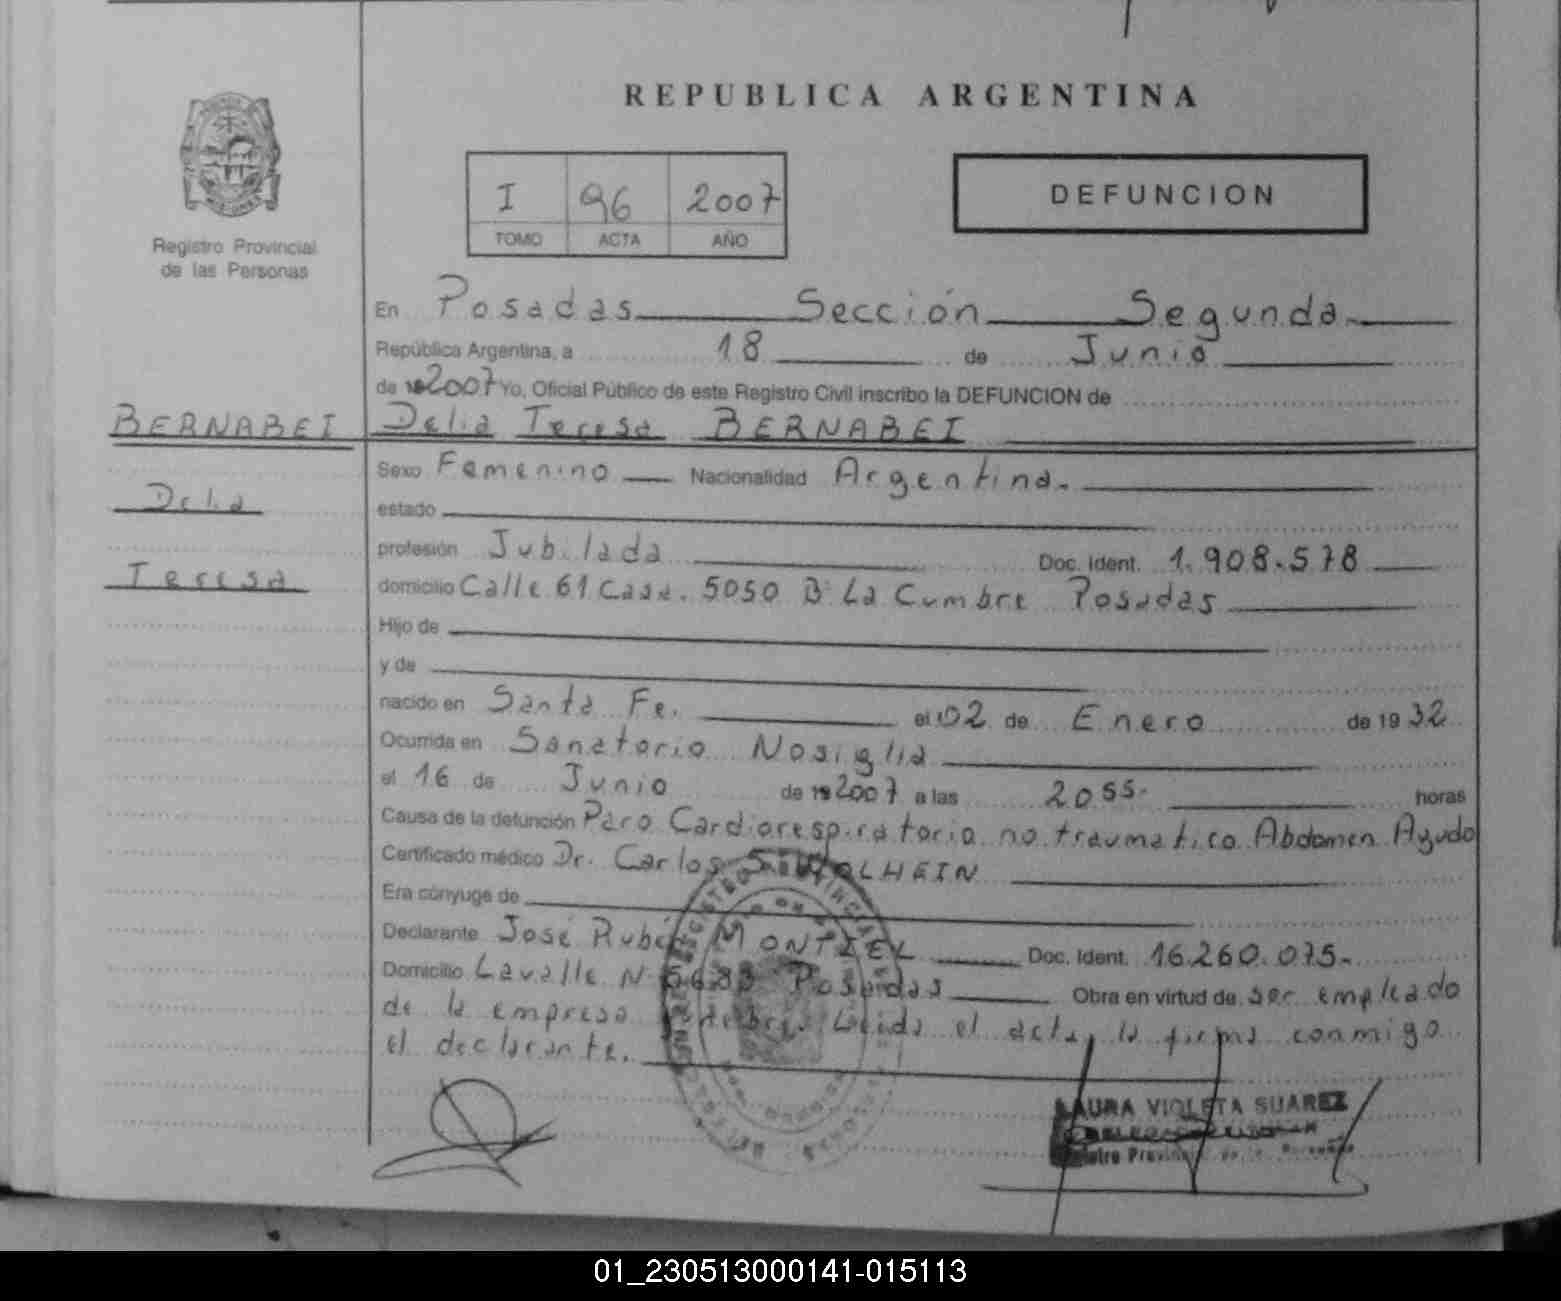 REPUBLICA ARGENTINA
I 96 2007
TOMO ACTA AÑO
DEFUNCION
Registro Provincial
de las Personas
En Posadas Sección Segunda
República Argentina, a 18 de Junio
de 19 2007 Yo, Oficial Público de este Registro Civil inscribo la DEFUNCION de
BERNABEI
Delia Teresa BERNABEI
Delia
Teresa
Sexo Femenino Nacionalidad Argentina.
estado
profesión Jubilada Doc. Ident. 1.908.578
domicilio Calle 61 Casa. 5050 B La Cumbre Posadas
Hijo de
y de
nacido en Santa Fe. el 02 de Enero de 19 32
Ocurrida en Sanatorio Nosiglia
el 16 de Junio de 19 2007 a las 20 55 horas
Causa de la defunción Paro Cardiorespiratorio no traumatico Abdomen Agudo
Certificado médico Dr. Carlos
Era cónyuge de
Declarante José Rubén MONTIEL Doc. Ident. 16.260.075.
Domicilio Lavalle N Posadas Obra en virtud de ser empleado
de la empresa Leida el acta, la firma conmigo
el declarante.
LAURA VIOLETA SUAREZ
01_230513000141-015113